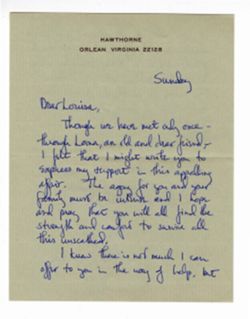 HAWTHORNE
ORLEAN VIRGINIA 22128
Sunday
Dear Louisa,
Though we have met only once -
through Lorna, an old and dear friend, -
I felt that I might write you to
express my support in this appalling
affair. The agony for you and your
family must be intense and I hope
and pray that you will all find the
strength and comfort to survive all
this unscathed.
I know there is not much I can
offer to you in the way of help, but